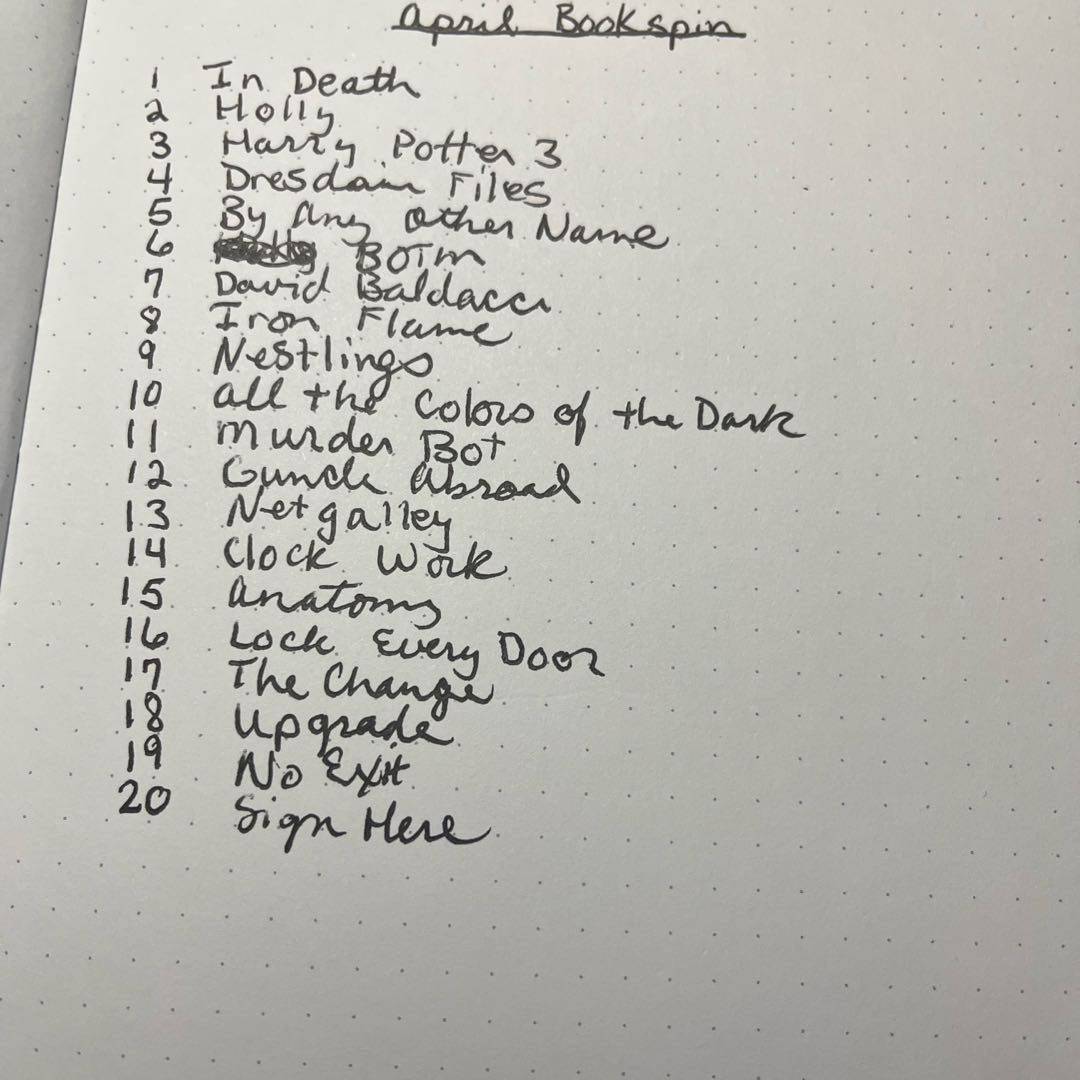 April Bookspin
1 In Death
2 Holly
3 Harry Potter 3
4 Dresdain Files
5 By Any Other Name
6 BOTM
7 David Baldacci
8 Iron Flame
9 Nestlings
10 all the Colors of the Dark
11 Murder Bot
12 Guncle Abroad
13 Netgalley
14 Clock Work
15 Anatomy
16 Lock Every Door
17 The Change
18 Upgrade
19 No Exit
20 Sign Here